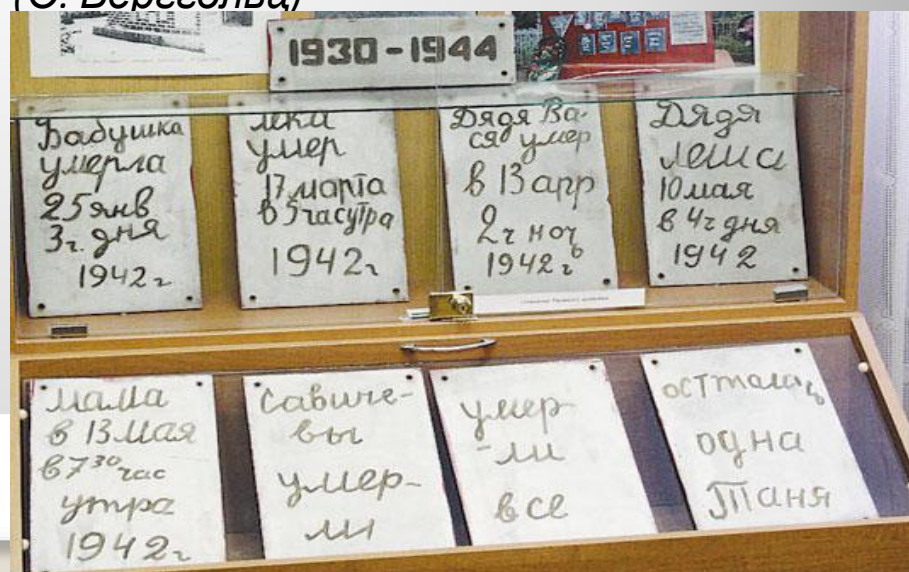 1930-1944
Бабушка
умерла
25 янв
3 ч. дня
1942 г
лека
умер
17 марта
в 5 час утра
1942 г
Дядя Ва-
ся умер
в 13 апр
2 ч ночь
1942 г
Дядя
леша
10 мая
в 4 ч дня
1942
мама
в 13 мая
в 7 30 час
утра
1942 г
савиче-
вы
умер-
ли
умер-
-ли
все
осталась
одна
Таня